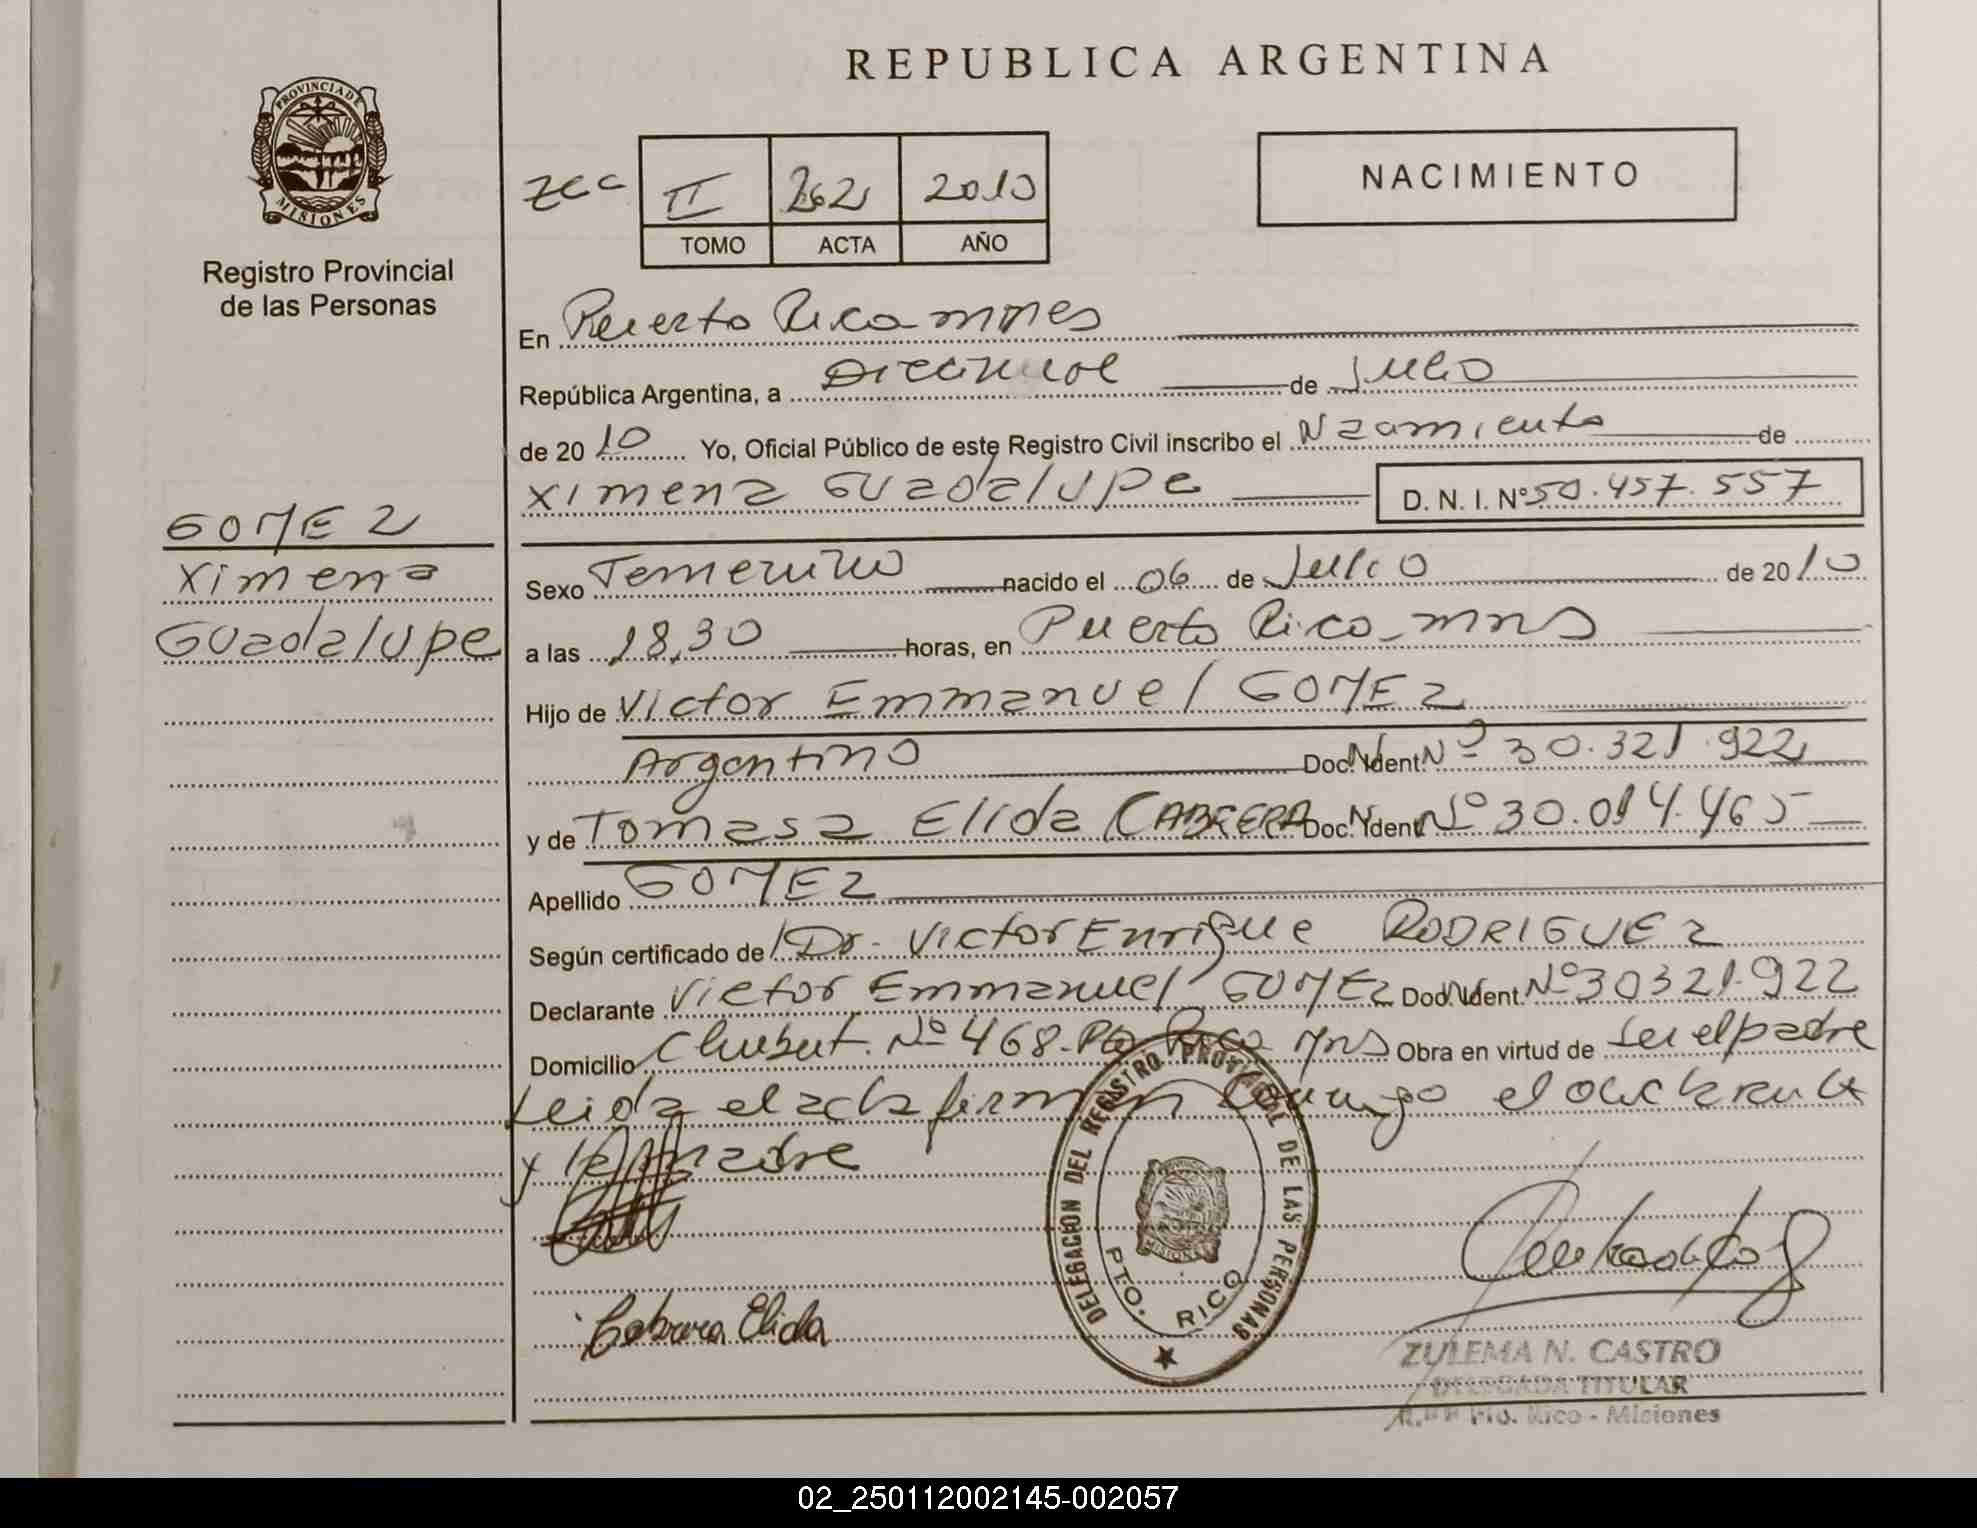 REPUBLICA ARGENTINA
PROVINCIA DE
MISIONES
Registro Provincial
de las Personas
II 262 2010
TOMO ACTA AÑO
NACIMIENTO
En Puerto Rico mnes
República Argentina, a de Julio
de 2010 Yo, Oficial Público de este Registro Civil inscribo el Nacimiento de
Ximena Guadalupe D. N. I. Nº 50.457.557
GOMEZ
Ximena
Guadalupe
Sexo Femenino nacido el 06 de Julio de 2010
a las 18,30 horas, en Puerto Rico mns
Hijo de Victor Emmanuel GOMEZ
Argentino Doc. Ident. Nº 30.321.922
y de Tomasa Elida CABRERA Doc. Ident. Nº 30.014.465
Apellido GOMEZ
Según certificado de Dr. Victor Enrique RODRIGUEZ
Declarante Victor Emmanuel GOMEZ Doc. Ident. Nº 30321.922
Domicilio Chubut Nº 468. Pto Rico Mns Obra en virtud de ser el padre
Leida el acta firman conmigo el declarante
y la madre
DELEGACION DEL REGISTRO PROVINCIAL DE LAS PERSONAS
MISIONES
PTO. RICO
Cabrera Elida
ZULEMA N. CASTRO
DELEGADA TITULAR
Pto. Rico - Misiones
02_250112002145-002057